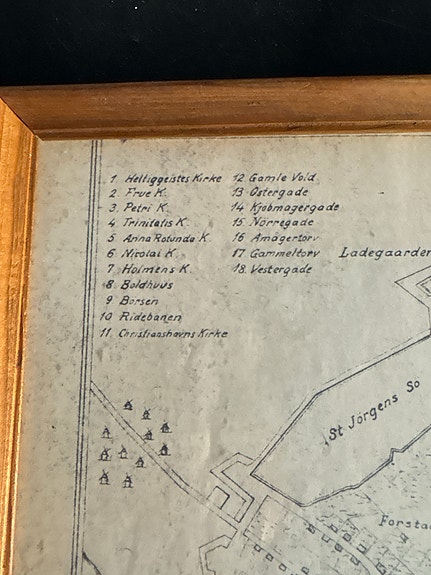 1 Helliggeistes Kirke
2 Frue K.
3 Petri K.
4 Trinitatis K.
5 Anna Rotunda K
6 Nicolai K.
7 Holmens K.
8 Boldhuus
9 Börsen
10 Ridebanen
11 Christianshavns Kirke
12 Gamle Vold.
13 Östergade
14 Kjöbmagergade
15 Nörregade
16 Amagertorv
17 Gammeltorv
18 Vestergade
Ladegaarden
St Jörgens Sö
Forsta